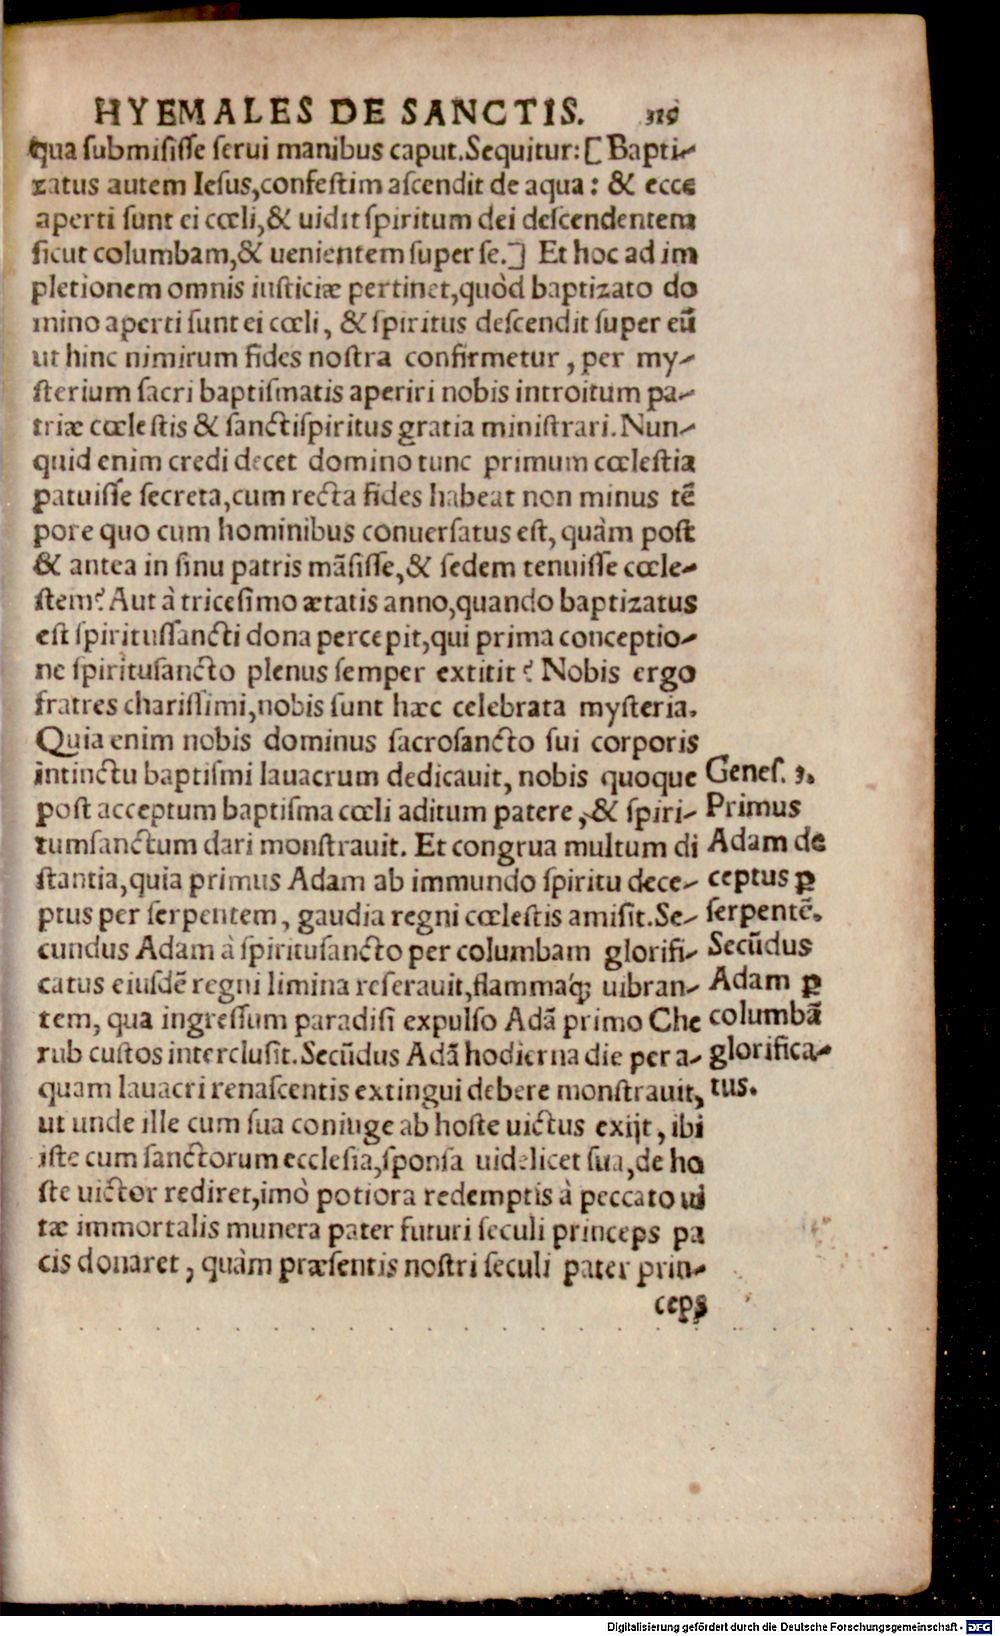 HYEMALES DE SANCTIS.
qua submisisse serui manibus caput. Sequitur: [Bapti-
zatus autem Iesus, confestim ascendit de aqua: & ecce
aperti sunt ei cœli, & uidit spiritum dei descendentem
sicut columbam, & uenientem super se.] Et hoc ad im
pletionem omnis iusticiæ pertinet, quòd baptizato do
mino aperti sunt ei cœli, & spiritus descendit super eũ
ut hinc nimirum fides nostra confirmetur, per my-
sterium sacri baptismatis aperiri nobis introitum pa-
triæ cœlestis & sanctispiritus gratia ministrari. Nun-
quid enim credi decet domino tunc primum cœlestia
patuisse secreta, cum recta fides habeat non minus tẽ
pore quo cum hominibus conuersatus est, quàm post
& antea in sinu patris mãsisse, & sedem tenuisse cœle-
stem? Aut à tricesimo ætatis anno, quando baptizatus
est spiritussancti dona percepit, qui prima conceptio-
ne spiritusancto plenus semper extitit? Nobis ergo
fratres charissimi, nobis sunt hæc celebrata mysteria.
Quia enim nobis dominus sacrosancto sui corporis
intinctu baptismi lauacrum dedicauit, nobis quoque
post acceptum baptisma cœli aditum patere, & spiri-
tumsanctum dari monstrauit. Et congrua multum di
stantia, quia primus Adam ab immundo spiritu dece-
ptus per serpentem, gaudia regni cœlestis amisit. Se-
cundus Adam à spiritusancto per columbam glorifi-
catus eiusdẽ regni limina reserauit, flammaq́ꝫ uibran-
tem, qua ingressum paradisi expulso Adã primo Che
rub custos interclusit. Secũdus Adã hodierna die per a-
quam lauacri renascentis extingui debere monstrauit,
ut unde ille cum sua coniuge ab hoste uictus exijt, ibi
iste cum sanctorum ecclesia, sponsa uidelicet sua, de ho
ste uictor rediret, imò potiora redemptis à peccato ui
tæ immortalis munera pater futuri seculi princeps pa
cis donaret, quàm præsentis nostri seculi pater prin-
ceps
Genes. 3.
Primus
Adam de
ceptus ꝑ
serpentẽ.
Secũdus
Adam ꝑ
columbã
glorifica-
tus.
Digitalisierung gefördert durch die Deutsche Forschungsgemeinschaft - DFG